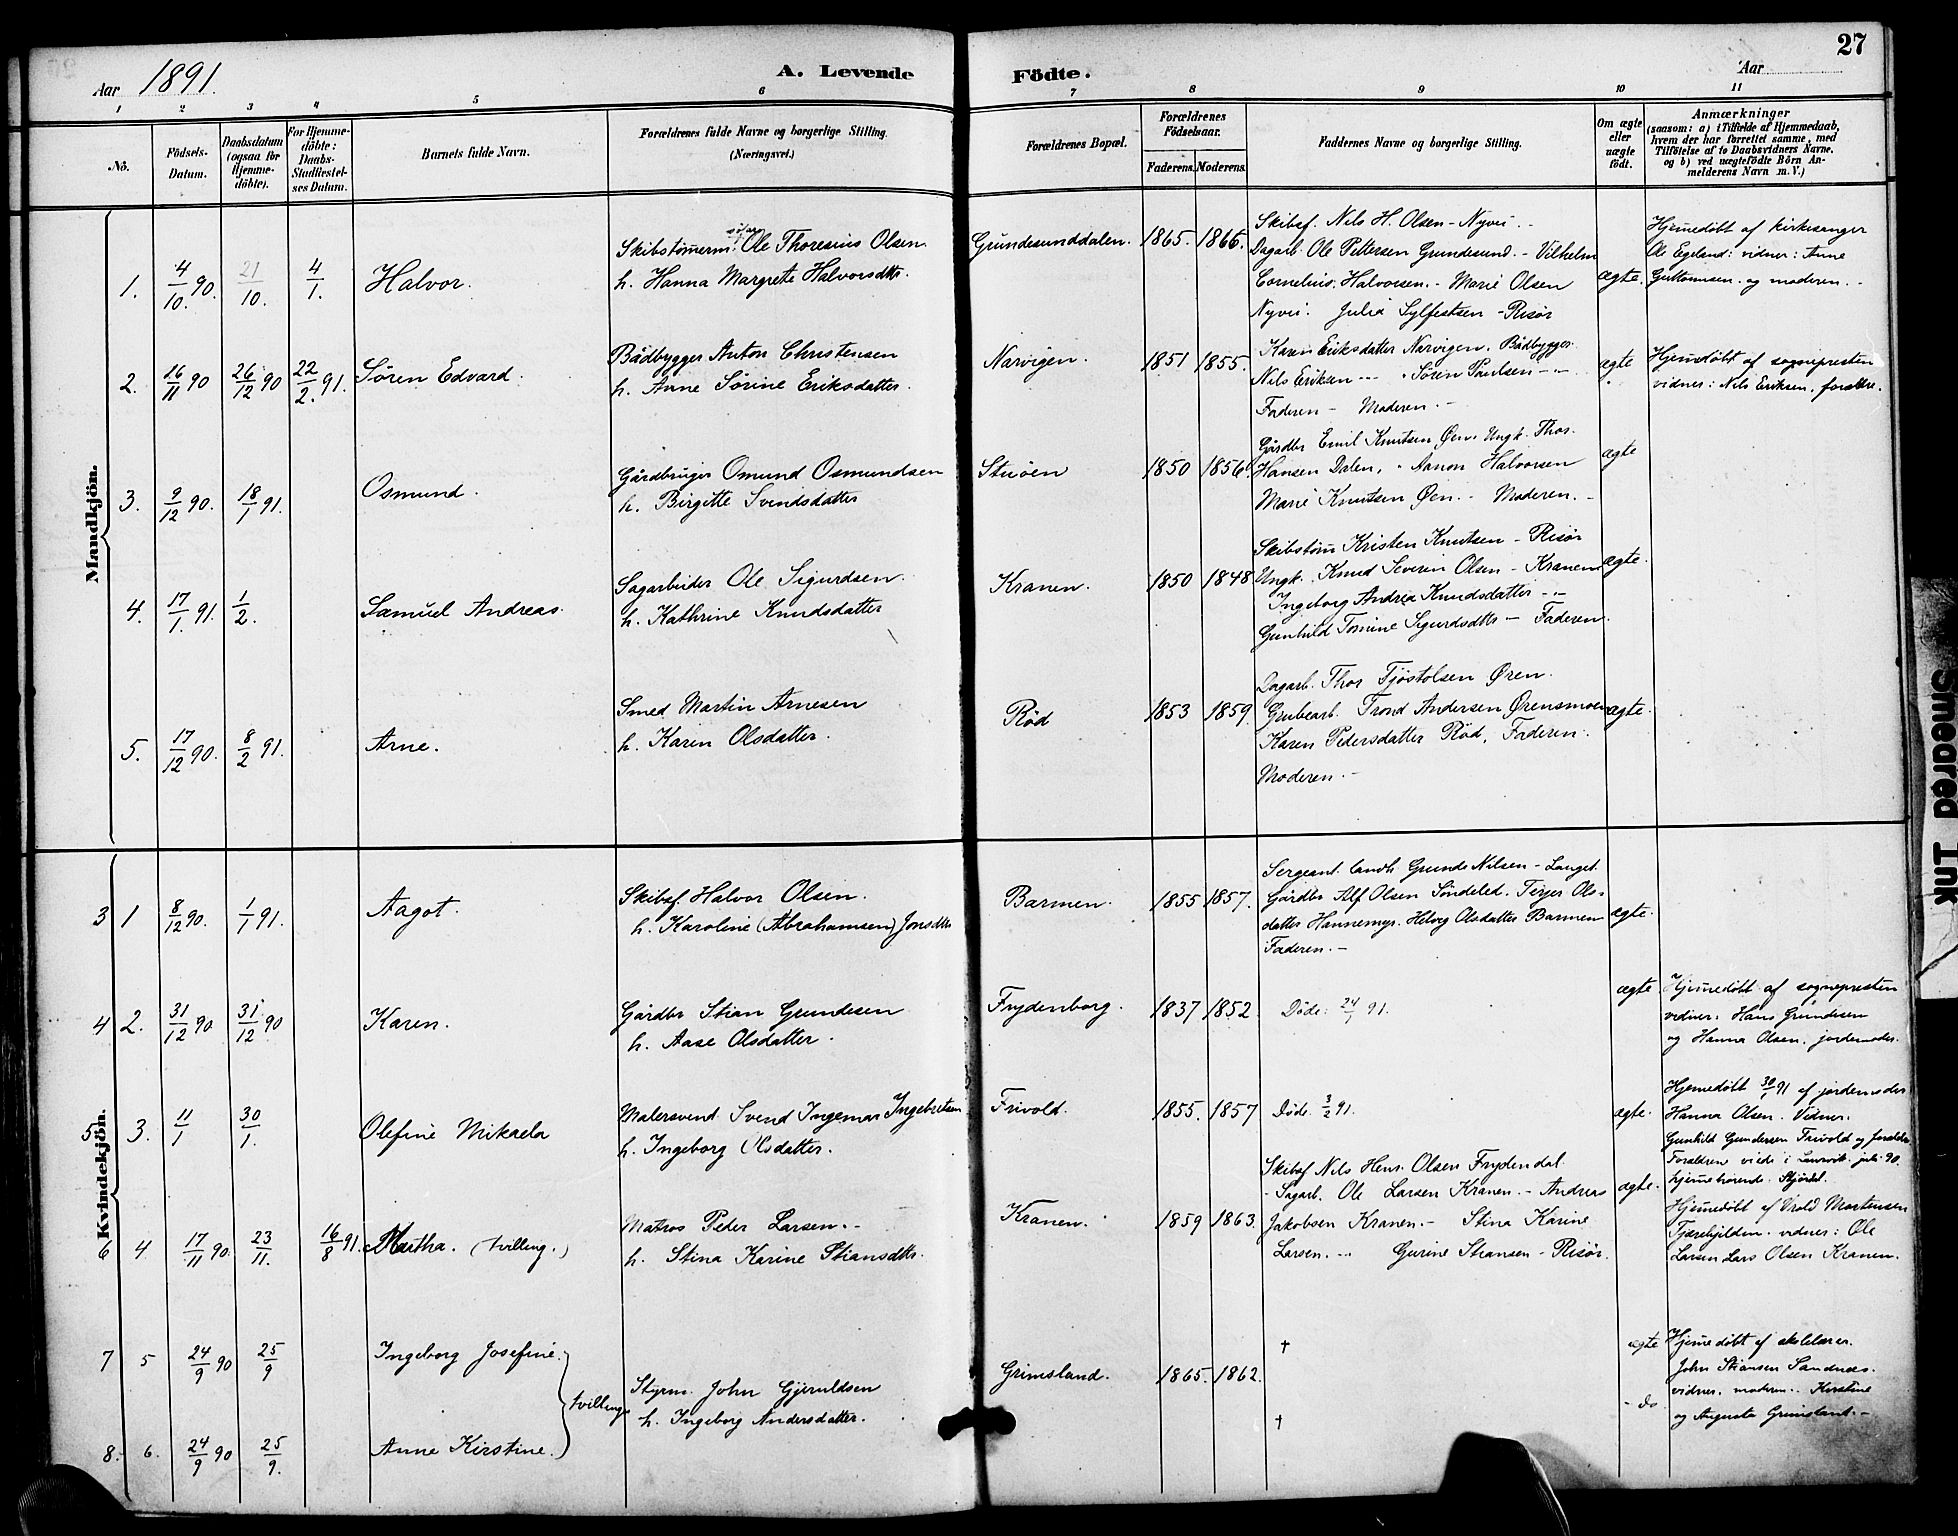 27
Aar 1891.
A. Levende Födte.
Aar
1 2 3 4 5 6 7 8 9 10 11
Nô.
Födsels-
Datum.
Daabsdatum
(ogsaa for
Hjemme-
döbte).
For Hjemme-
döbte:
Daabs-
Stadfæstel-
ses Datum.
Barnets fulde Navn.
Forældrenes fulde Navne og borgerlige Stilling.
(Næringsvei.)
Forældrenes Bopæl.
Forældrenes
Födselsaar.
Faderens. Moderens.
Faddernes Navne og borgerlige Stilling.
Om ægte
eller
uægte
födt.
Anmærkninger
(saasom: a) i Tilfælde af Hjemmedaab,
hvem der har forrettet samme, med
Tilföielse af to Daabsvidners Navne.
og b) ved uægtefödte Börn An-
melderens Navn m. V.)
Mandkjön.
1. 4/10 90. 21/10. 4/1. Halvor.
Skibstømerm. Ole Thoresius Olsen
h. Hanna Margrete Halvorsdtr.
Grundesunddalen. 1865. 1866.
Skibsf. Nils H. Olsen - Nyvei. -
Dagarb. Ole Pettersen Grundesund. - Vilhelm
Cornelius Halvorsen. - Marie Olsen
Nyvei. Julia Sylfestsen - Risør
ægte.
Hjemedøbt af kirkesanger
Ole Egeland: vidner: Anne
Guttormsen. og moderen. -
2. 16/11 90 26/12 90 22/2. 91. Søren Edvard.
Bådbygger Anton Christensen
h. Anne Sørine Eriksdatter.
Narvigen. 1851 1855.
Karen Eriksdatter Narvigen. Bådbygger
Nils Eriksen - - " Søren Paulsen - -
Faderen - Moderen. -
ægte
Hjemedøbt af sognepresten
vidner: Nils Eriksen, forældre.
3. 9/12 90. 18/1 91. Osmund.
Gårdbruger Omund Osmundsen
h. Birgitte Svendsdatter
Stuøen 1850 1856.
Gårdbr Emil Knutsen Øen. Ungk. Thor.
Hansen Dalen, " Aanon Halvorsen
Marie Knutsen Øen. - Moderen. -
ægte
4. 17/1. 91. 1/2. Samuel Andreas.
Sagarbeider Ole Sigurdsen.
h. Kathrine Knudsdatter
Kranen. 1850 1848
Skibstøm Kristen Knutsen - Risør
Ungk. Knud Severin Olsen - Kranen
Ingeborg Andrea Knudsdatter - -
Gunhild Tomine Sigurdsdtr - Faderen.
ægte.
5. 17/12 90. 8/2 91. Arne.
Smed Martin Arnesen
h. Karen Olsdatter.
Rød 1853 1859.
Dagarb. Thor Tjøstolsen Øren.
Grubearb. Trond Andersen Ørensmoen
Karen Pedersdatter Rød, Faderen.
Moderen. -
ægte.
Kvindekjön.
3 1 8/12 90. 1/1 91. Aagot.
Skibsf. Halvor Olsen.
h. Karoline (Abrahamsen) Jonsdtr
Barmen. 1855 1857.
Sergeant. Grunde Nilsen - Langet.
Gårdbr Alf Olsen Søndeled. Terjer Ols-
datter Hannemyr. Helveg Olsdatter Barmen
Faderen. -
ægte.
4 2. 31/12 90 31/12 90 Karen.
Gårdbr Stian Grundesen
h. Aase Olsdatter.
Frydenborg. 1837 1852.
Døde: 24/1 91.
ægte
Hjemedøbt af sognepresten
vidner: Hans Grundesen
og Hanna Olsen, jordemoder.
5 3. 11/1 30/1. Olefine Mikaela
Malersvend Svend Ingemar Ingebretsen
h. Ingeborg Olsdatter.
Frivold. 1855. 1857
Døde. 3/2 91.
ægte.
Hjemedøbt 30/1 91 af jordemoder
Hanna Olsen. Vidner.
Gunhild Gundersen Frivold og forældre
Forældren viede i Laurvik juli 90.
hjemehørende
6 4. 17/11 90. 23/11. 16/8 91. Martha. (tvilling.)
Matros Peder Larsen. -
h. Stina Karine Stiansdtr.
Kranen. 1859 1863.
Skibsf Nils Henr. Olsen Frydendal
- Sagarb. Ole Larsen Kranen. - Andreas
Jakobsen Kranen. - Stina Karine
Larsen. - - Gurine Stiansen - Risør.
ægte.
Hjemedøbt af Vrold Mortensen
vidner: Ole
Larsen Lars Olsen Kranen.
7 5 24/9 90 25/9 Ingeborg Josefine.
tvillinge
Styrm. John Gjeruldsen
h. Ingeborg Andersdatter.
Grimsland. 1865. 1862.
†
ægte
Hjemedøbt af skolelærer.
John Stiansen Sandnes.
vidner. moderen. Kirstine
og Augusta Grimsland. -
8. 6. 24/9 90 25/9. Anne Kirstine.
†
- do
Smeared Ink